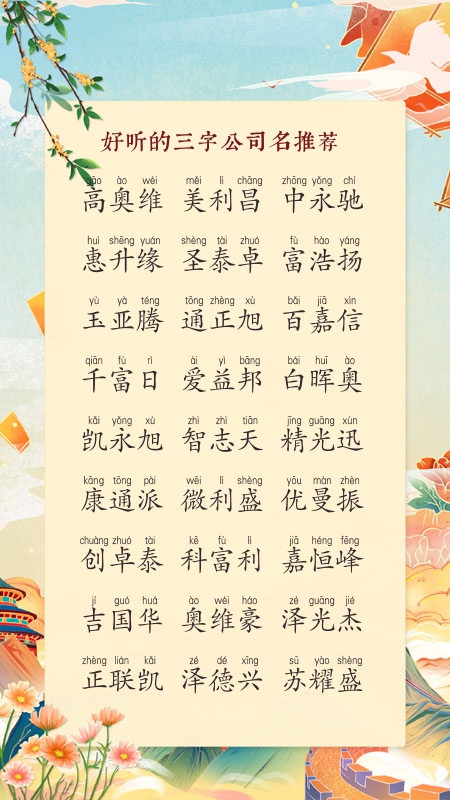 好听的三字公司名推荐
gāo ào wéi měi lì chāng zhōng yǒng chí
高奥维 美利昌 中永驰
huì shēng yuán shèng tài zhuó fù hào yáng
惠升缘 圣泰卓 富浩扬
yù yà téng tōng zhèng xù bǎi jiā xìn
玉亚腾 通正旭 百嘉信
qiān fù rì ài yì bāng bái huī ào
千富日 爱益邦 白晖奥
kǎi yǒng xù zhì zhì tiān jīng guāng xùn
凯永旭 智志天 精光迅
kāng tōng pài wēi lì shèng yōu màn zhèn
康通派 微利盛 优曼振
chuàng zhuó tài kē fù lì jiā héng fēng
创卓泰 科富利 嘉恒峰
jí guó huá ào wéi háo zé guāng jié
吉国华 奥维豪 泽光杰
zhèng lián kǎi zé dé xīng sū yào shèng
正联凯 泽德兴 苏耀盛